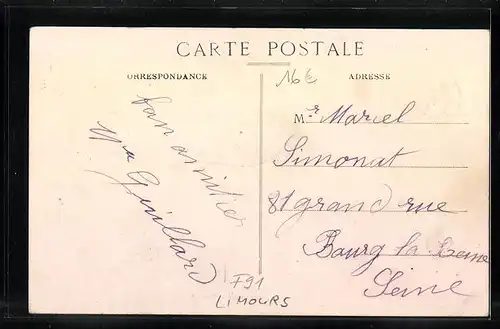 CARTE POSTALE
ORRESPONDANCE
ADRESSE
16€
Mr Marcel
Simonat
81 grand rue
Bourg la Reine
Seine
bon amitier
Guillard
F91
LIMOURS